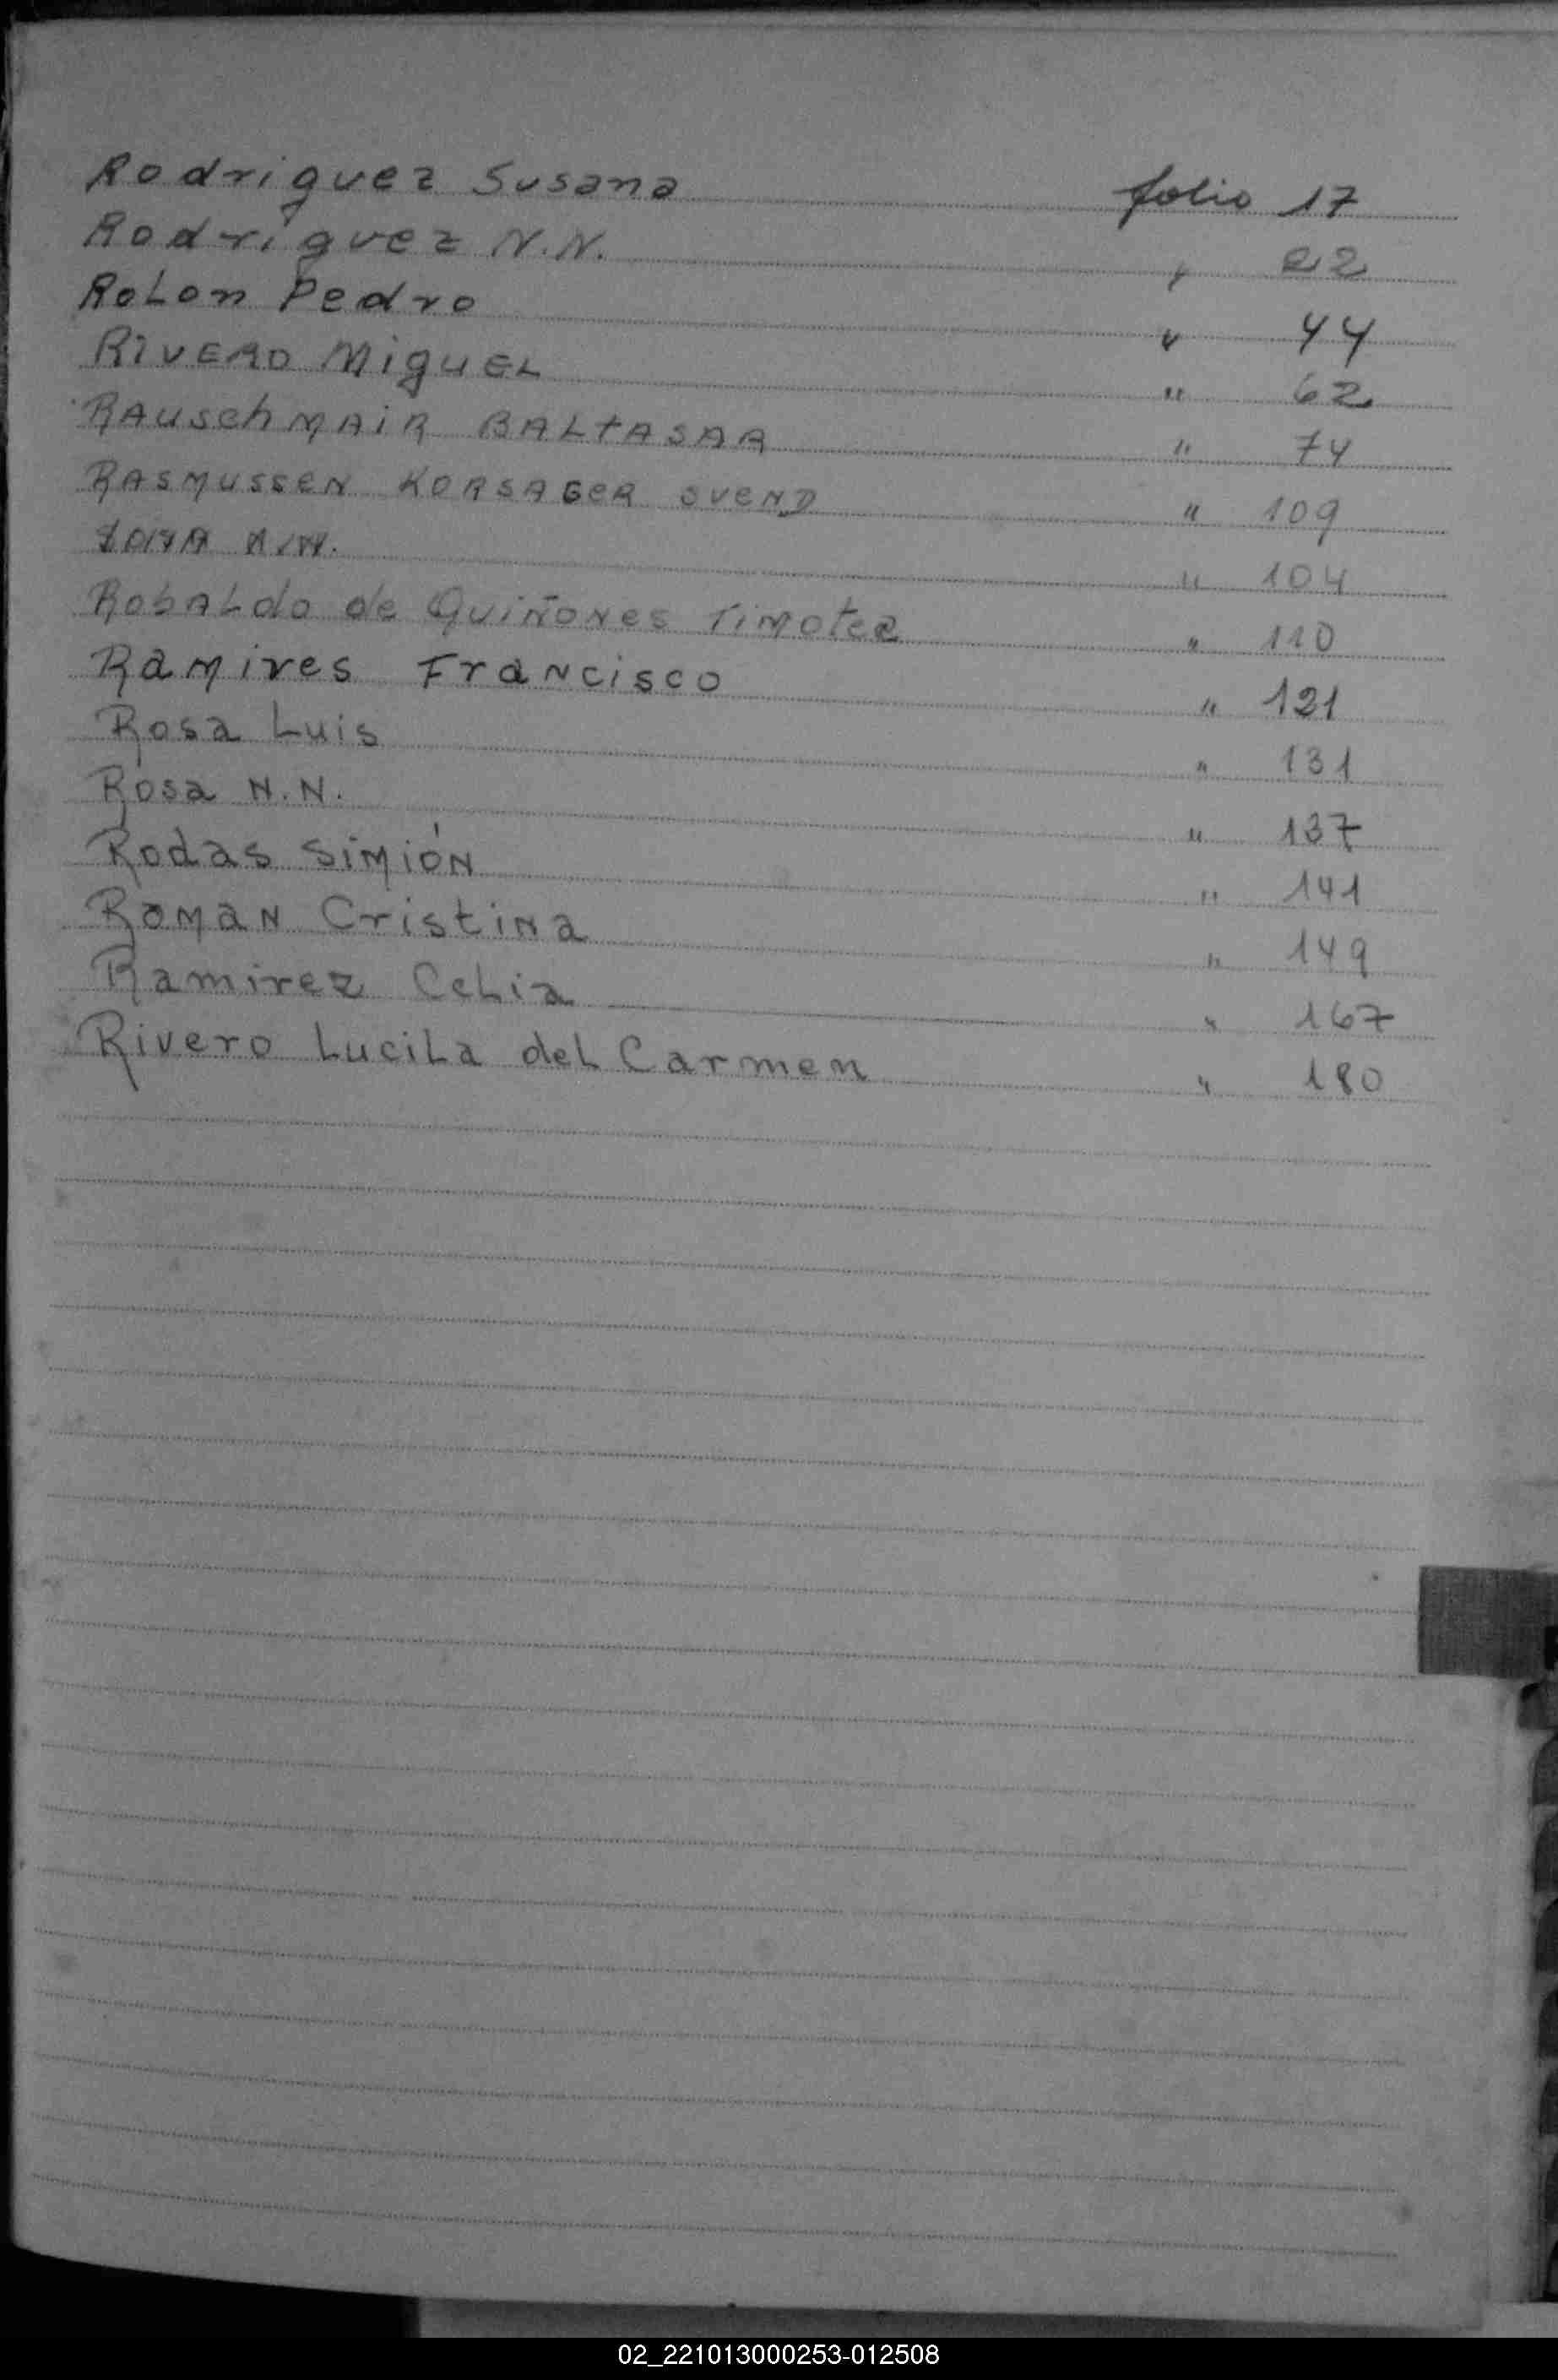 Rodriguez Susana folio 17
Rodriguez N.N. " 22
RoLon Pedro " 44
RIVERO MiguEL " 62
RAuschMAiR BALtASAR " 74
RASMUSSEN KORSAGER SVEND " 109
N.N. " 104
RobALdo de QuiÑoNes TiMotea " 110
RaMires FraNcisco " 121
Rosa Luis " 131
Rosa N.N. " 137
Rodas SiMióN " 141
RoMaN CristiNa " 149
Ramirez CeLia " 167
Rivero LuciLa deL Carmen " 180
02_221013000253-012508